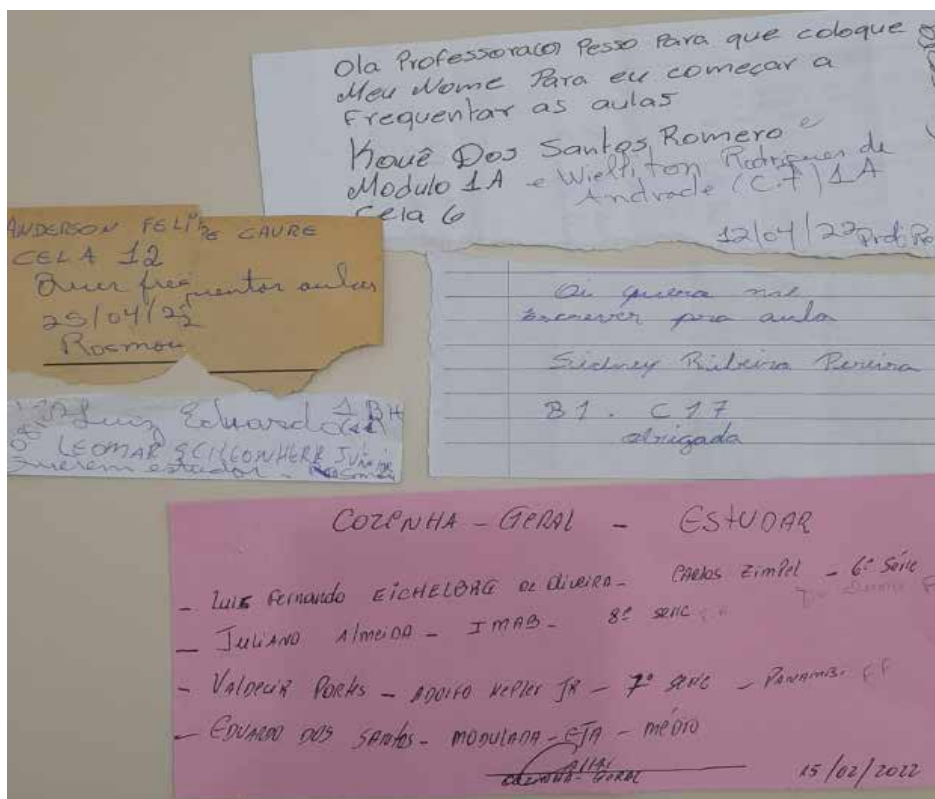 Ola Professora(o) Pesso Para que coloque
Meu Nome Para eu começar a
Frequentar as aulas
Kauê Dos Santos Romero e
Modulo 1A e Wielliton Rodrigues de
Andrade (C.7) 1A
Cela 6
12/04/22 Prof: Ro
ANDERSON FELIPE CAURE
CELA 12
Quer frequentar aulas
25/04/22
Rosmari
Oi quera me
Escrever para aula
Sidney Ribeiro Pereira
B1. C17
obrigada
Luiz Eduardo 1B
LEOMAR JUNIOR
Querem estudar
COZINHA - GERAL - ESTUDAR
- Luis Fernando EICHELBRG de Oliveira - CARLOS Zimpel - 6ª Série
- JULIANO Almeida - IMAB - 8ª serie
- VALDECIR PORTES - ADOLFO KEPLER JR - 7ª SERIE - PANAMBI
- EDUARDO DOS SANTOS - MODULADA - EJA - médio
COZINHA - GERAL
15/02/2022